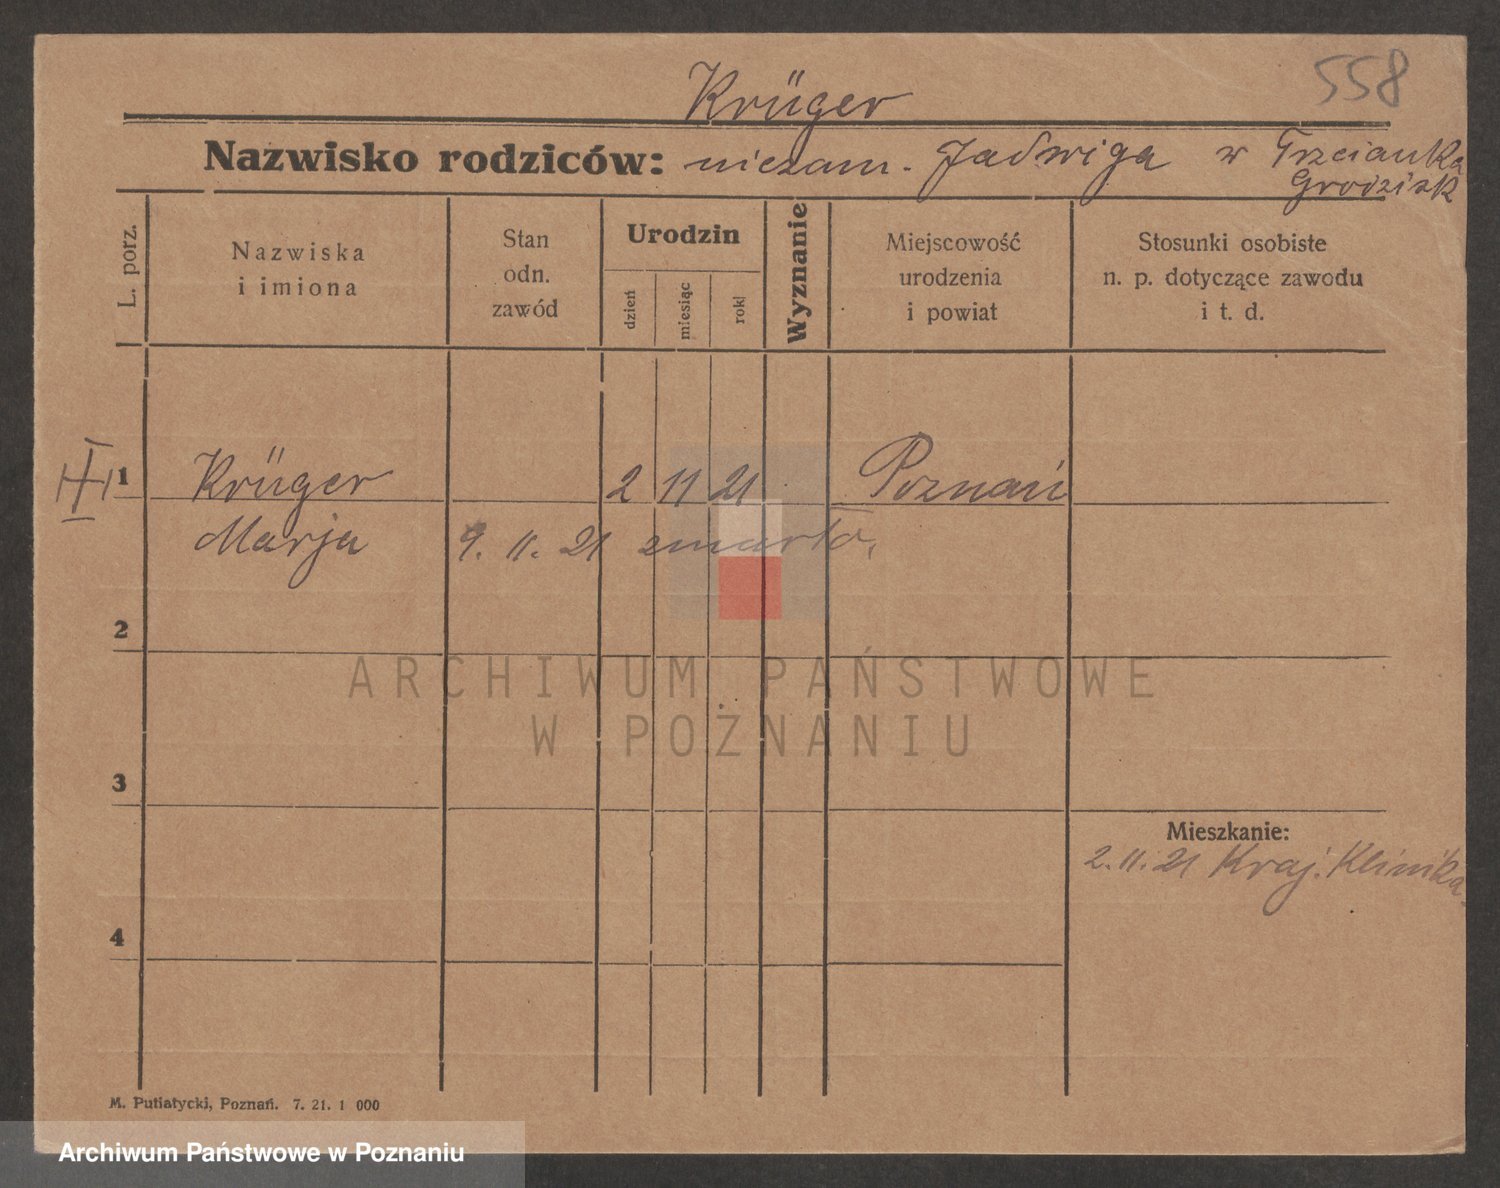 558
Krüger
Nazwisko rodziców: niezam. Jadwiga w Trzcianka
Grodzisk
L. porz.
Nazwiska
i imiona
Stan
odn.
zawód
Urodzin
dzień
miesiąc
rok
Wyznanie
Miejscowość
urodzenia
i powiat
Stosunki osobiste
n. p. dotyczące zawodu
i t. d.
1 Krüger 2 11 21 Poznań
Marja 9. 11. 21 zmarła.
2
ARCHIWUM PAŃSTWOWE
W POZNANIU
3
Mieszkanie:
2. 11. 21 Kraj. Klinika.
4
M. Putiatycki, Poznań. 7. 21. 1 000
Archiwum Państwowe w Poznaniu